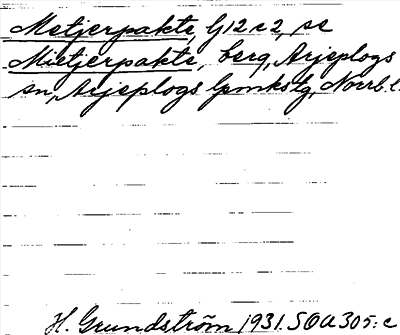 Metjerpakte, G12c2, se
Mietjerpakte, berg, Arjeplogs
sn, Arjeplogs lpmkslg, Norrb.l.
H. Grundström 1931. SOA 305: c